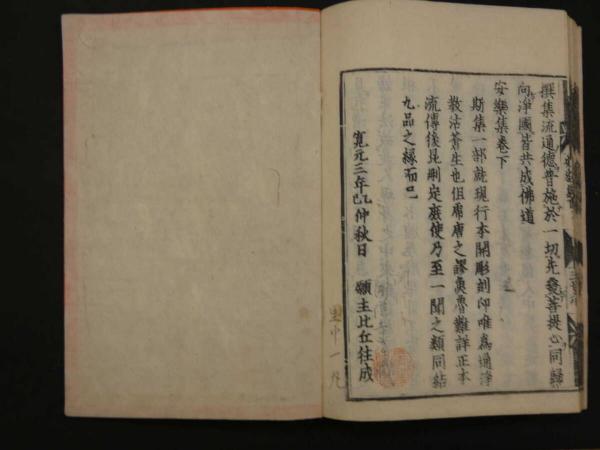 撰集流通德普施於一切先發菩提心同歸
向淨國皆共成佛道
安樂集卷下
斯集一部就現行本開彫刻印唯為通淨
教沽蒼生也但席唐之謬魚魯難詳正本
流傳後昆刪定庶使乃至一聞之類同結
九品之緣而已
寬元三年乙巳仲秋日 願主比丘往成